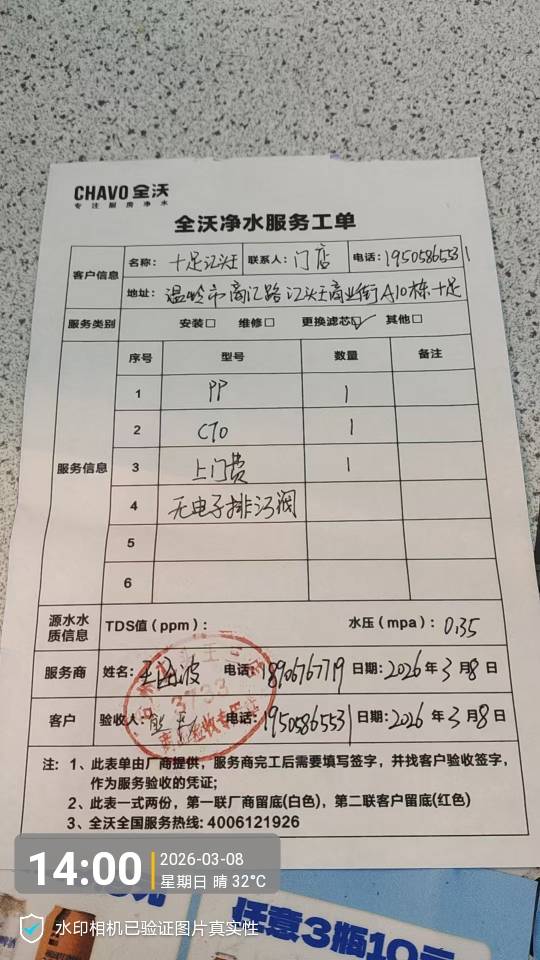 CHAVO 全沃
专注厨房净水
全沃净水服务工单
客户信息 名称: 十足江头王 联系人: 门店 电话: 19505865531
地址: 温岭市商汇路江头王商业街A10栋十足
服务类别 安装□ 维修□ 更换滤芯☑ 其他□
服务信息
序号 型号 数量 备注
1 PP 1
2 CTO 1
3 上门费 1
4 无电子排污阀
5
6
源水水质信息 TDS值(ppm): 水压(mpa): 0.35
服务商 姓名: 电话: 18906767719 日期: 2026年3月8日
客户 验收人: 电话: 19505865531 日期: 2026年3月8日
注: 1、此表单由厂商提供,服务商完工后需要填写签字,并找客户验收签字,
作为服务验收的凭证;
2、此表一式两份,第一联厂商留底(白色),第二联客户留底(红色)
3、全沃全国服务热线: 4006121926
14:00
2026-03-08
星期日 晴 32°C
水印相机已验证图片真实性
任意3瓶10元